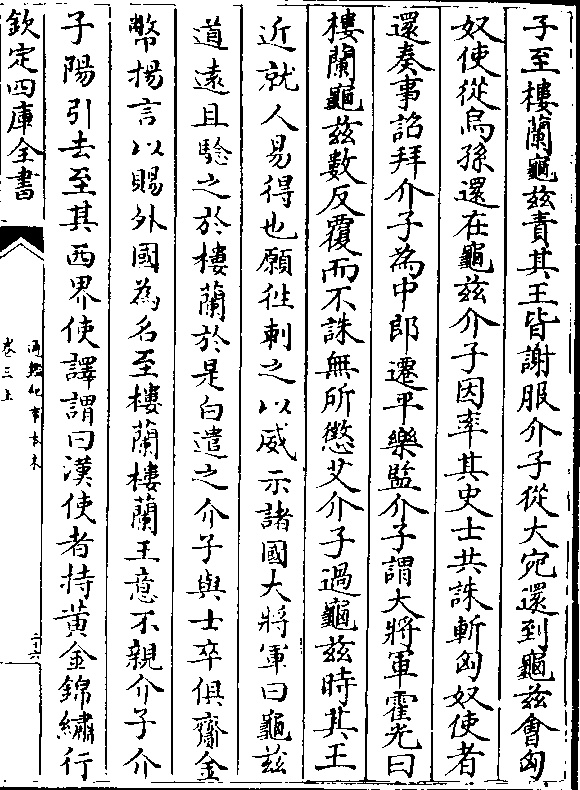 子至樓蘭龜兹責其王皆謝服介子從大宛還到龜兹會匈
奴使從烏孫還在龜兹介子因率其吏士共誅斬匈奴使者
還奏事詔拜介子為中郎遷平樂監介子謂大將軍霍光曰
樓蘭龜兹數反覆而不誅無所懲艾介子過龜兹時其王
近就人易得也願往刺之以威示諸國大將軍曰龜兹
道遠且驗之於樓蘭於是白遣之介子與士卒俱齎金
幣揚言以賜外國為名至樓蘭樓蘭王意不親介子介
子陽引去至其西界使譯謂曰漢使者持黃金錦繡行
欽定四庫全書
通鑑紀事本末
卷三上
二十六